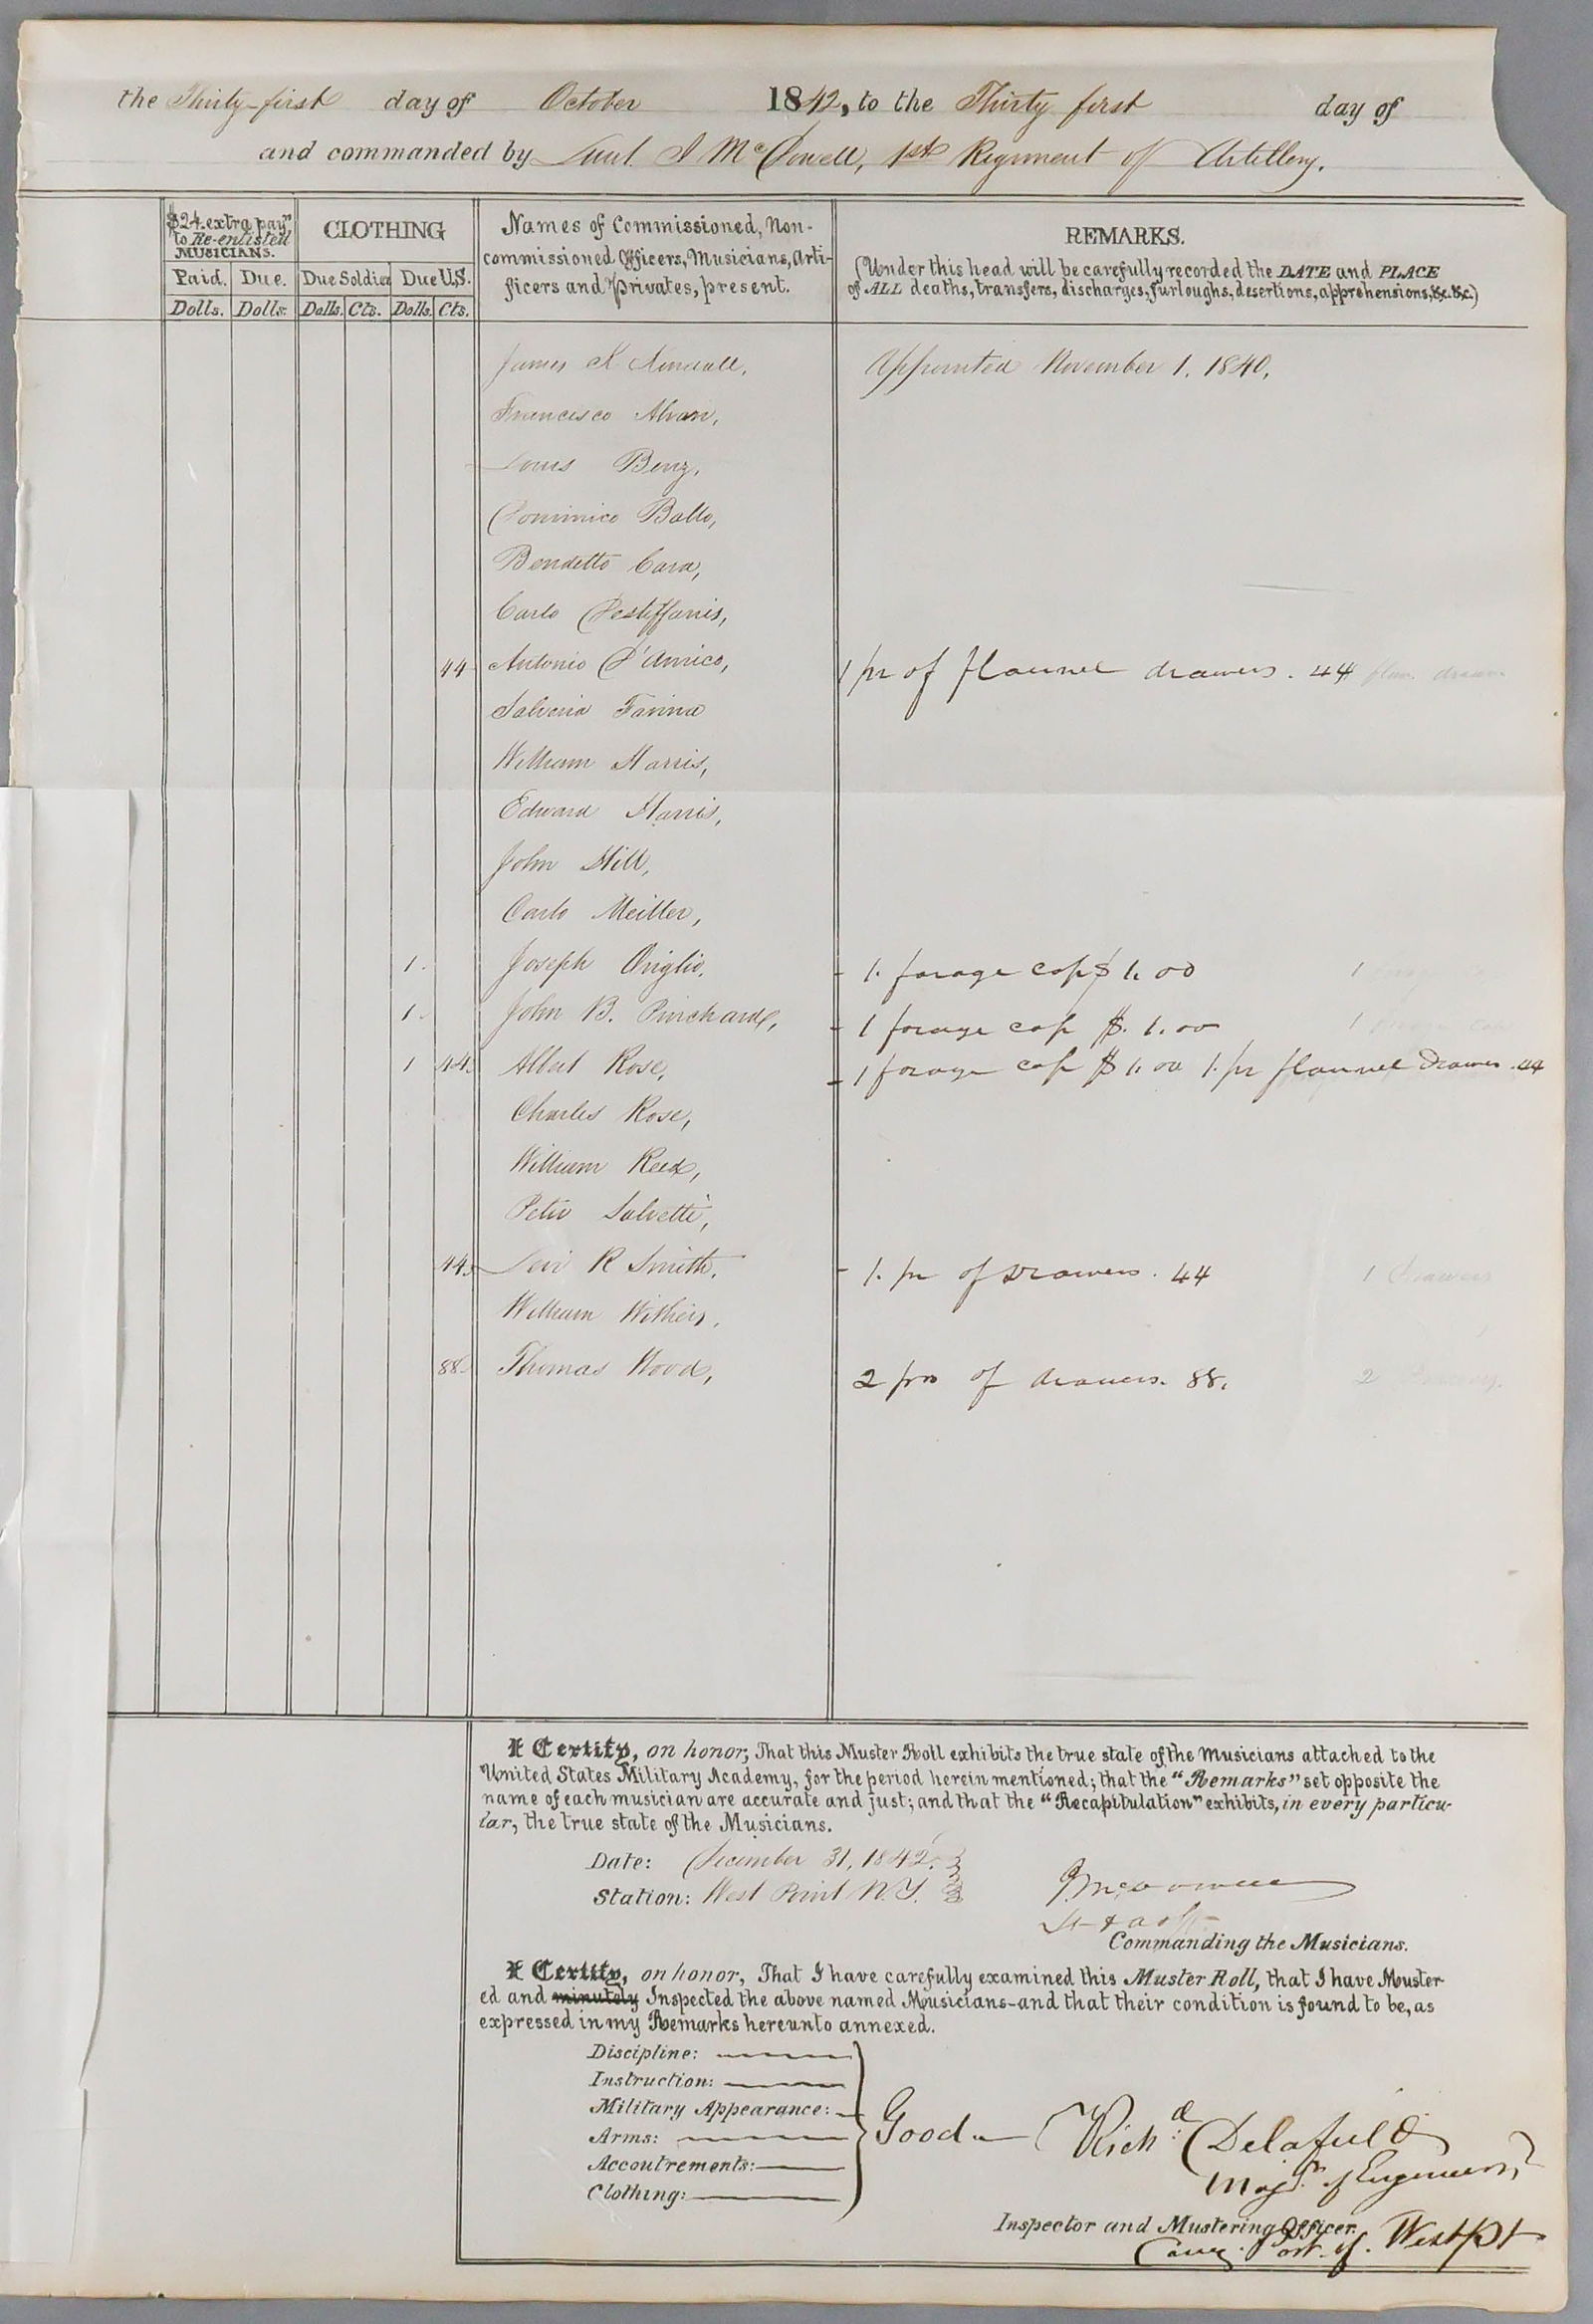 the Thirty-first day of October 1842, to the Thirty first day of
and commanded by Lieut. I McDowell, 1st Regiment of Artillery.
$24. extra pay,
to Re-enlisted
MUSICIANS.
CLOTHING
Names of Commissioned, Non-
commissioned Officers, Musicians, Arti-
ficers and Privates, present.
REMARKS.
(Under this head will be carefully recorded the DATE and PLACE
of ALL deaths, transfers, discharges, furloughs, desertions, apprehensions, &c. &c.)
Paid. Due. Due Soldier Due U.S.
Dolls. Dolls. Dolls. Cts. Dolls. Cts.
James K Appointed November 1. 1840.
Francisco
Louis Benz,
Dominico Ballo,
Bendetto Cara,
Carlo Destiffanis,
44 Antonio D'Amico, 1 pr of flannel drawers. 44 flan. drawers
Farina
William Harris,
Edward Harris,
John Hill,
Carlo Meiller,
1. Joseph Origlio. 1. forage cap $ 1.00 1
1. John B. Purchard, 1 forage cap $. 1.00 1
1 44. Albert Rose, 1 forage cap $ 1.00 1. pr flannel Drawers .44
Charles Rose,
William Reed,
Peter Salvetti,
44. Levi R Smith. 1. pr of Drawers. 44 1 Drawers
William Withers.
88. Thomas Wood, 2 prs of drawers. 88. 2
I Certify, on honor, That this Muster Roll exhibits the true state of the Musicians attached to the
United States Military Academy, for the period herein mentioned; that the "Remarks" set opposite the
name of each musician are accurate and just; and that the "Recapitulation" exhibits, in every particu-
lar, the true state of the Musicians.
Date: December 31, 1842.
Station: West Point N.Y.
I McDowell
Lt & adjt
Commanding the Musicians.
I Certify, on honor, That I have carefully examined this Muster Roll, that I have Muster
ed and minutely Inspected the above named Musicians-and that their condition is found to be, as
expressed in my Remarks hereunto annexed.
Discipline:
Instruction:
Military Appearance:
Arms:
Accoutrements:
Clothing:
Good
Richd Delafield
Majr. of Engineers
Inspector and Mustering Officer.
Comg. Post of West Pt